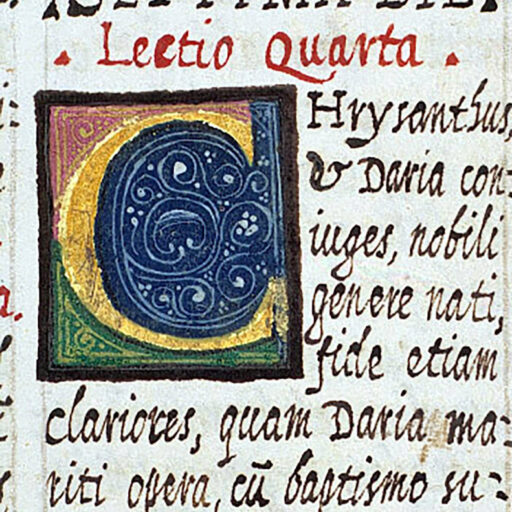 . Lectio Quarta .
CHrysanthus,
& Daria con-
iuges, nobili
genere nati,
fide etiam
clariores, quam Daria ma-
riti opera, cū baptismo su-